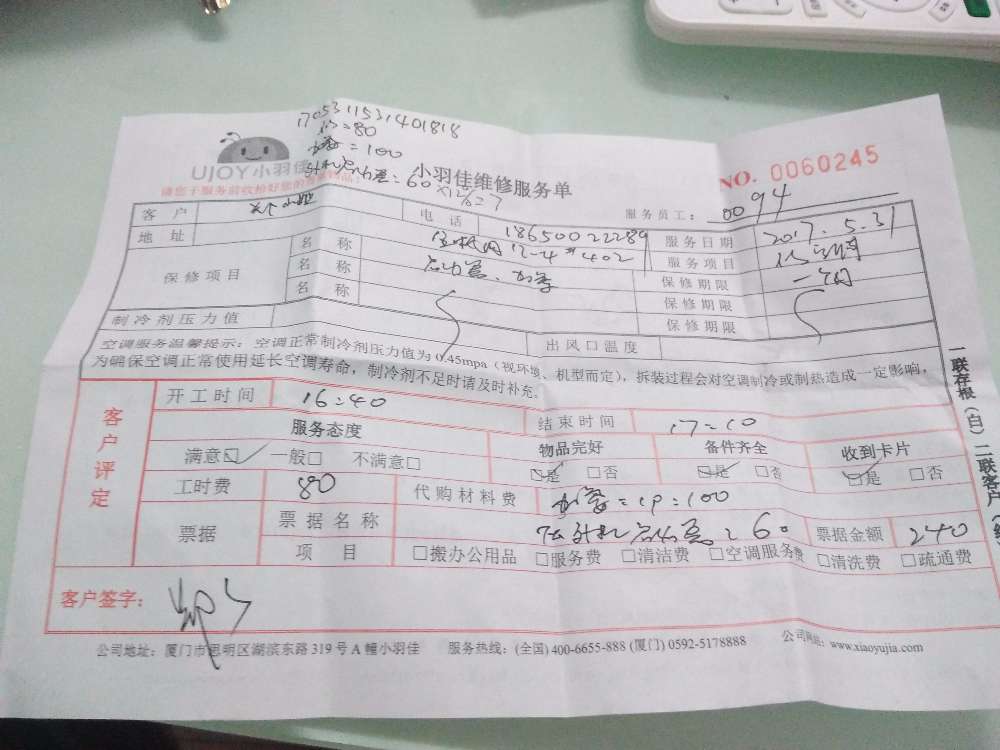 1705311531401818
=80
=100
UJOY小羽佳
=60
小羽佳维修服务单
NO. 0060245
服务员工: 0094
客户 小姐 电话 18650022289 服务日期 2017.5.31
地址 12-4#402 服务项目
保修项目 名称 保修期限 一个月
名称 保修期限
名称 保修期限
制冷剂压力值 出风口温度
空调服务温馨提示: 空调正常制冷剂压力值为0.45mpa (视环境、机型而定), 拆装过程会对空调制冷或制热造成一定影响,
为确保空调正常使用延长空调寿命, 制冷剂不足时请及时补充。
客户评定
开工时间 16:40 结束时间 17:10
服务态度 物品完好 备件齐全 收到卡片
满意☑ 一般□ 不满意□ ☑是 □否 ☑是 □否 ☑是 □否
工时费 80 代购材料费 =1P=100
票据 票据名称 60 票据金额 240
项目 □搬办公用品 □服务费 □清洁费 □空调服务费 □清洗费 □疏通费
客户签字:
公司地址: 厦门市思明区湖滨东路319号A幢小羽佳 服务热线: (全国) 400-6655-888 (厦门) 0592-5178888 公司网站: www.xiaoyujia.com
一联存根 (白) 二联客户